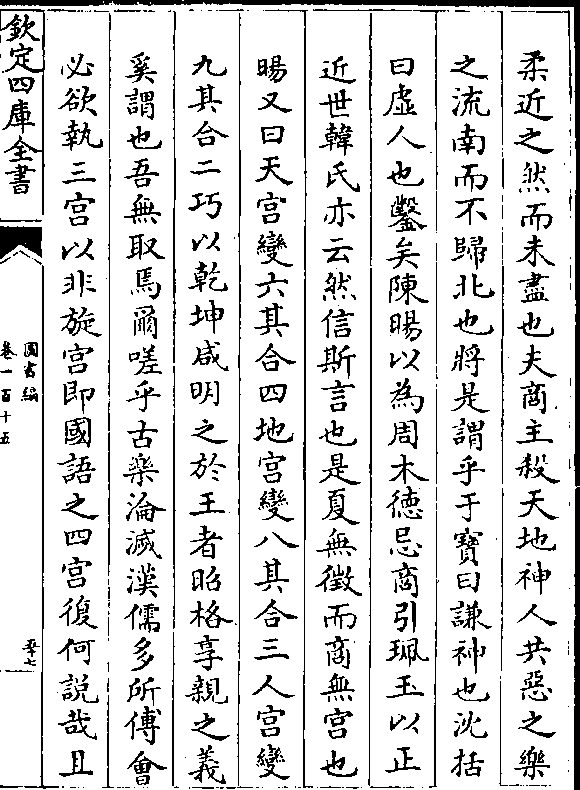 柔近之然而未盡也夫商主殺天地神人共惡之樂
之流南而不歸北也將是謂乎于寶曰謙神也沈括
曰虛人也鑿矣陳暘以為周木德忌商引珮玉以正
近世韓氏亦云然信斯言也是夏無徵而商無宮也
暘又曰天宮變六其合四地宮變八其合三人宮變
九其合二巧以乾坤咸明之於王者昭格享親之義
奚謂也吾無取焉爾嗟乎古樂淪滅漢儒多所傅會
必欲執三宮以非旋宮即國語之四宮復何說哉且
欽定四庫全書
圖書編
卷一百十五
至七